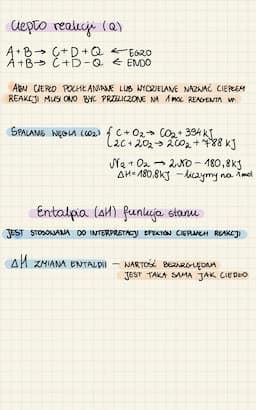 Ciepło reakcji (Q)
A+B → C+D+Q ← EGZO
A+B → C+D-Q ← ENDO
ABY CIEPŁO POCHŁANIANE LUB WYDZIELANE NAZWAĆ CIEPŁEM
REAKCJI MUSI ONO BYĆ PRZELICZONE NA 1 MOL REAGENTA
SPALANIE WĘGLA (CO2) { C + O2 → CO2 + 394 kJ
2C + 2O2 → 2CO2 + 788 kJ
N2 + O2 → 2NO - 180,8kJ
ΔH = 180,8kJ - liczymy na 1 mol
Entalpia (ΔH) funkcja stanu
JEST STOSOWANA DO INTERPRETACJI EFEKTÓW CIEPLNYCH REAKCJI
ΔH ZMIANA ENTALPII - WARTOŚĆ BEZWZGLĘDNA
JEST TAKA SAMA JAK CIEPŁO